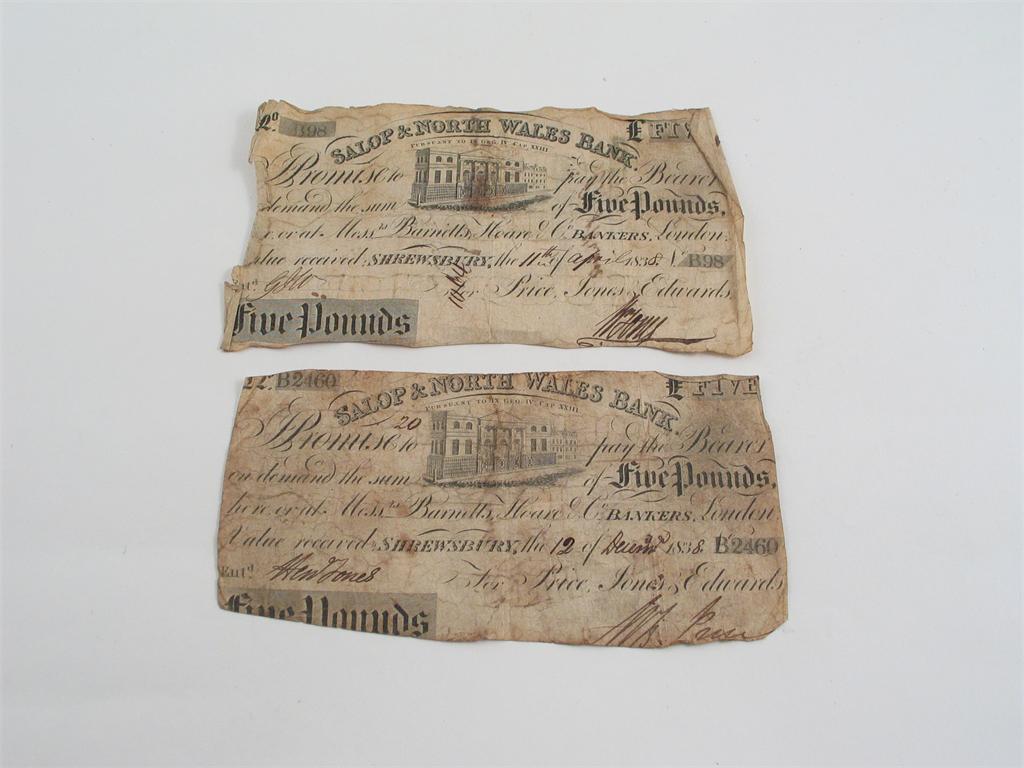 B98 £ FIV
SALOP & NORTH WALES BANK
PURSUANT TO IX GEO. IV. CAP. XXIII
I Promise to pay the Bearer
demand the sum of Five Pounds,
or at Mess.rs Barnetts, Hoare & Co. BANKERS, London,
received, SHREWSBURY, the 11th of April 1838 B98
Ent.d
For Price, Jones, & Edwards
Five Pounds
B2460 £ FIVE
SALOP & NORTH WALES BANK
PURSUANT TO IX GEO. IV. CAP. XXIII
20
I Promise to pay the Bearer
on demand the sum of Five Pounds,
here or at Mess.rs Barnetts, Hoare & Co. BANKERS, London
Value received, SHREWSBURY, the 12 of 1838 B2460
Ent.d Jones
For Price, Jones, & Edwards
Five Pounds